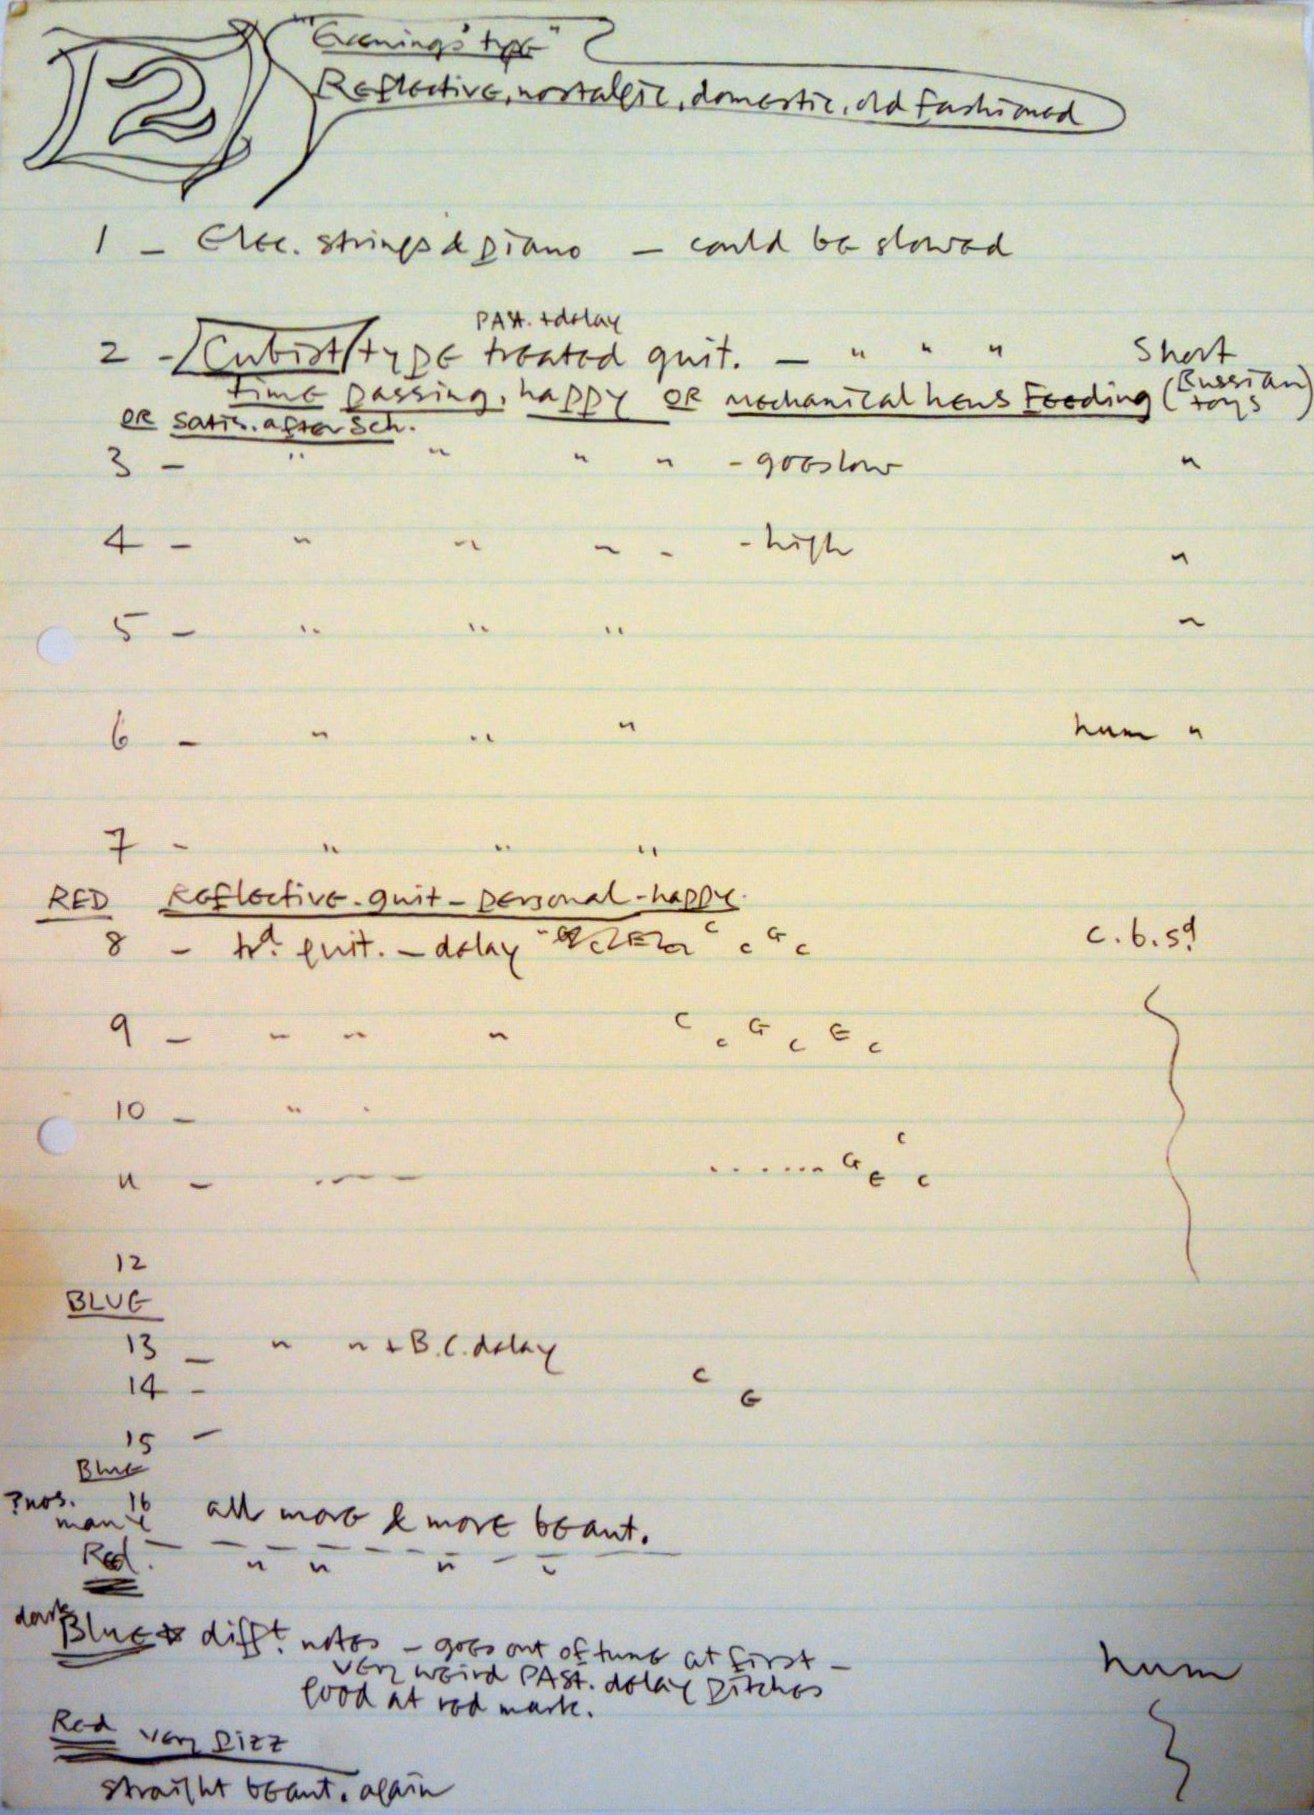 12
"Evenings' type"
Reflective, nostalgic, domestic, old fashioned
1 - Elec. strings & piano - could be slowed
PAST. + delay
2 - Cubist type treated guit. - " " " Short
time passing, happy OR mechanical hens Feeding (Russian toys)
OR satis. after Sch.
3 - " " " " - goes low "
4 - " " " " - high "
5 - " " " "
6 - " " " hum "
7 - " " "
RED Reflective - guit - personal - happy.
8 - trd. guit. - delay C C G C c.b.sd.
9 - " " " C C G C E C
10 - " "
11 - " " ...... G E C C
12
BLUE
13 - " " + B.C. delay
14 - C G
15 -
Blue
?nos. 16 all more & more beaut.
many
Red. " " " "
dark Blue difft. notes - goes out of tune at first -
very weird PAST. delay pitches
Good at red mark. hum
Red very pizz
straight beaut. again